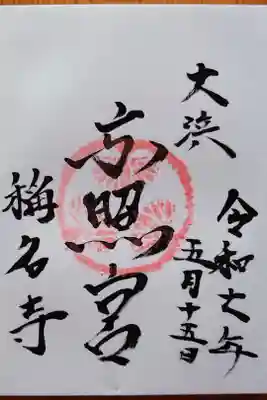 大浜
令和六年
五月十五日
東照宮
稱名寺